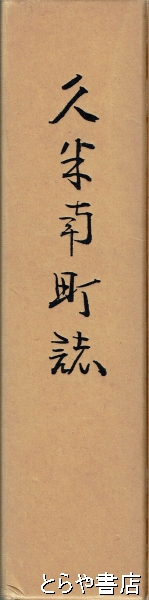 久米南町誌
とらや書店